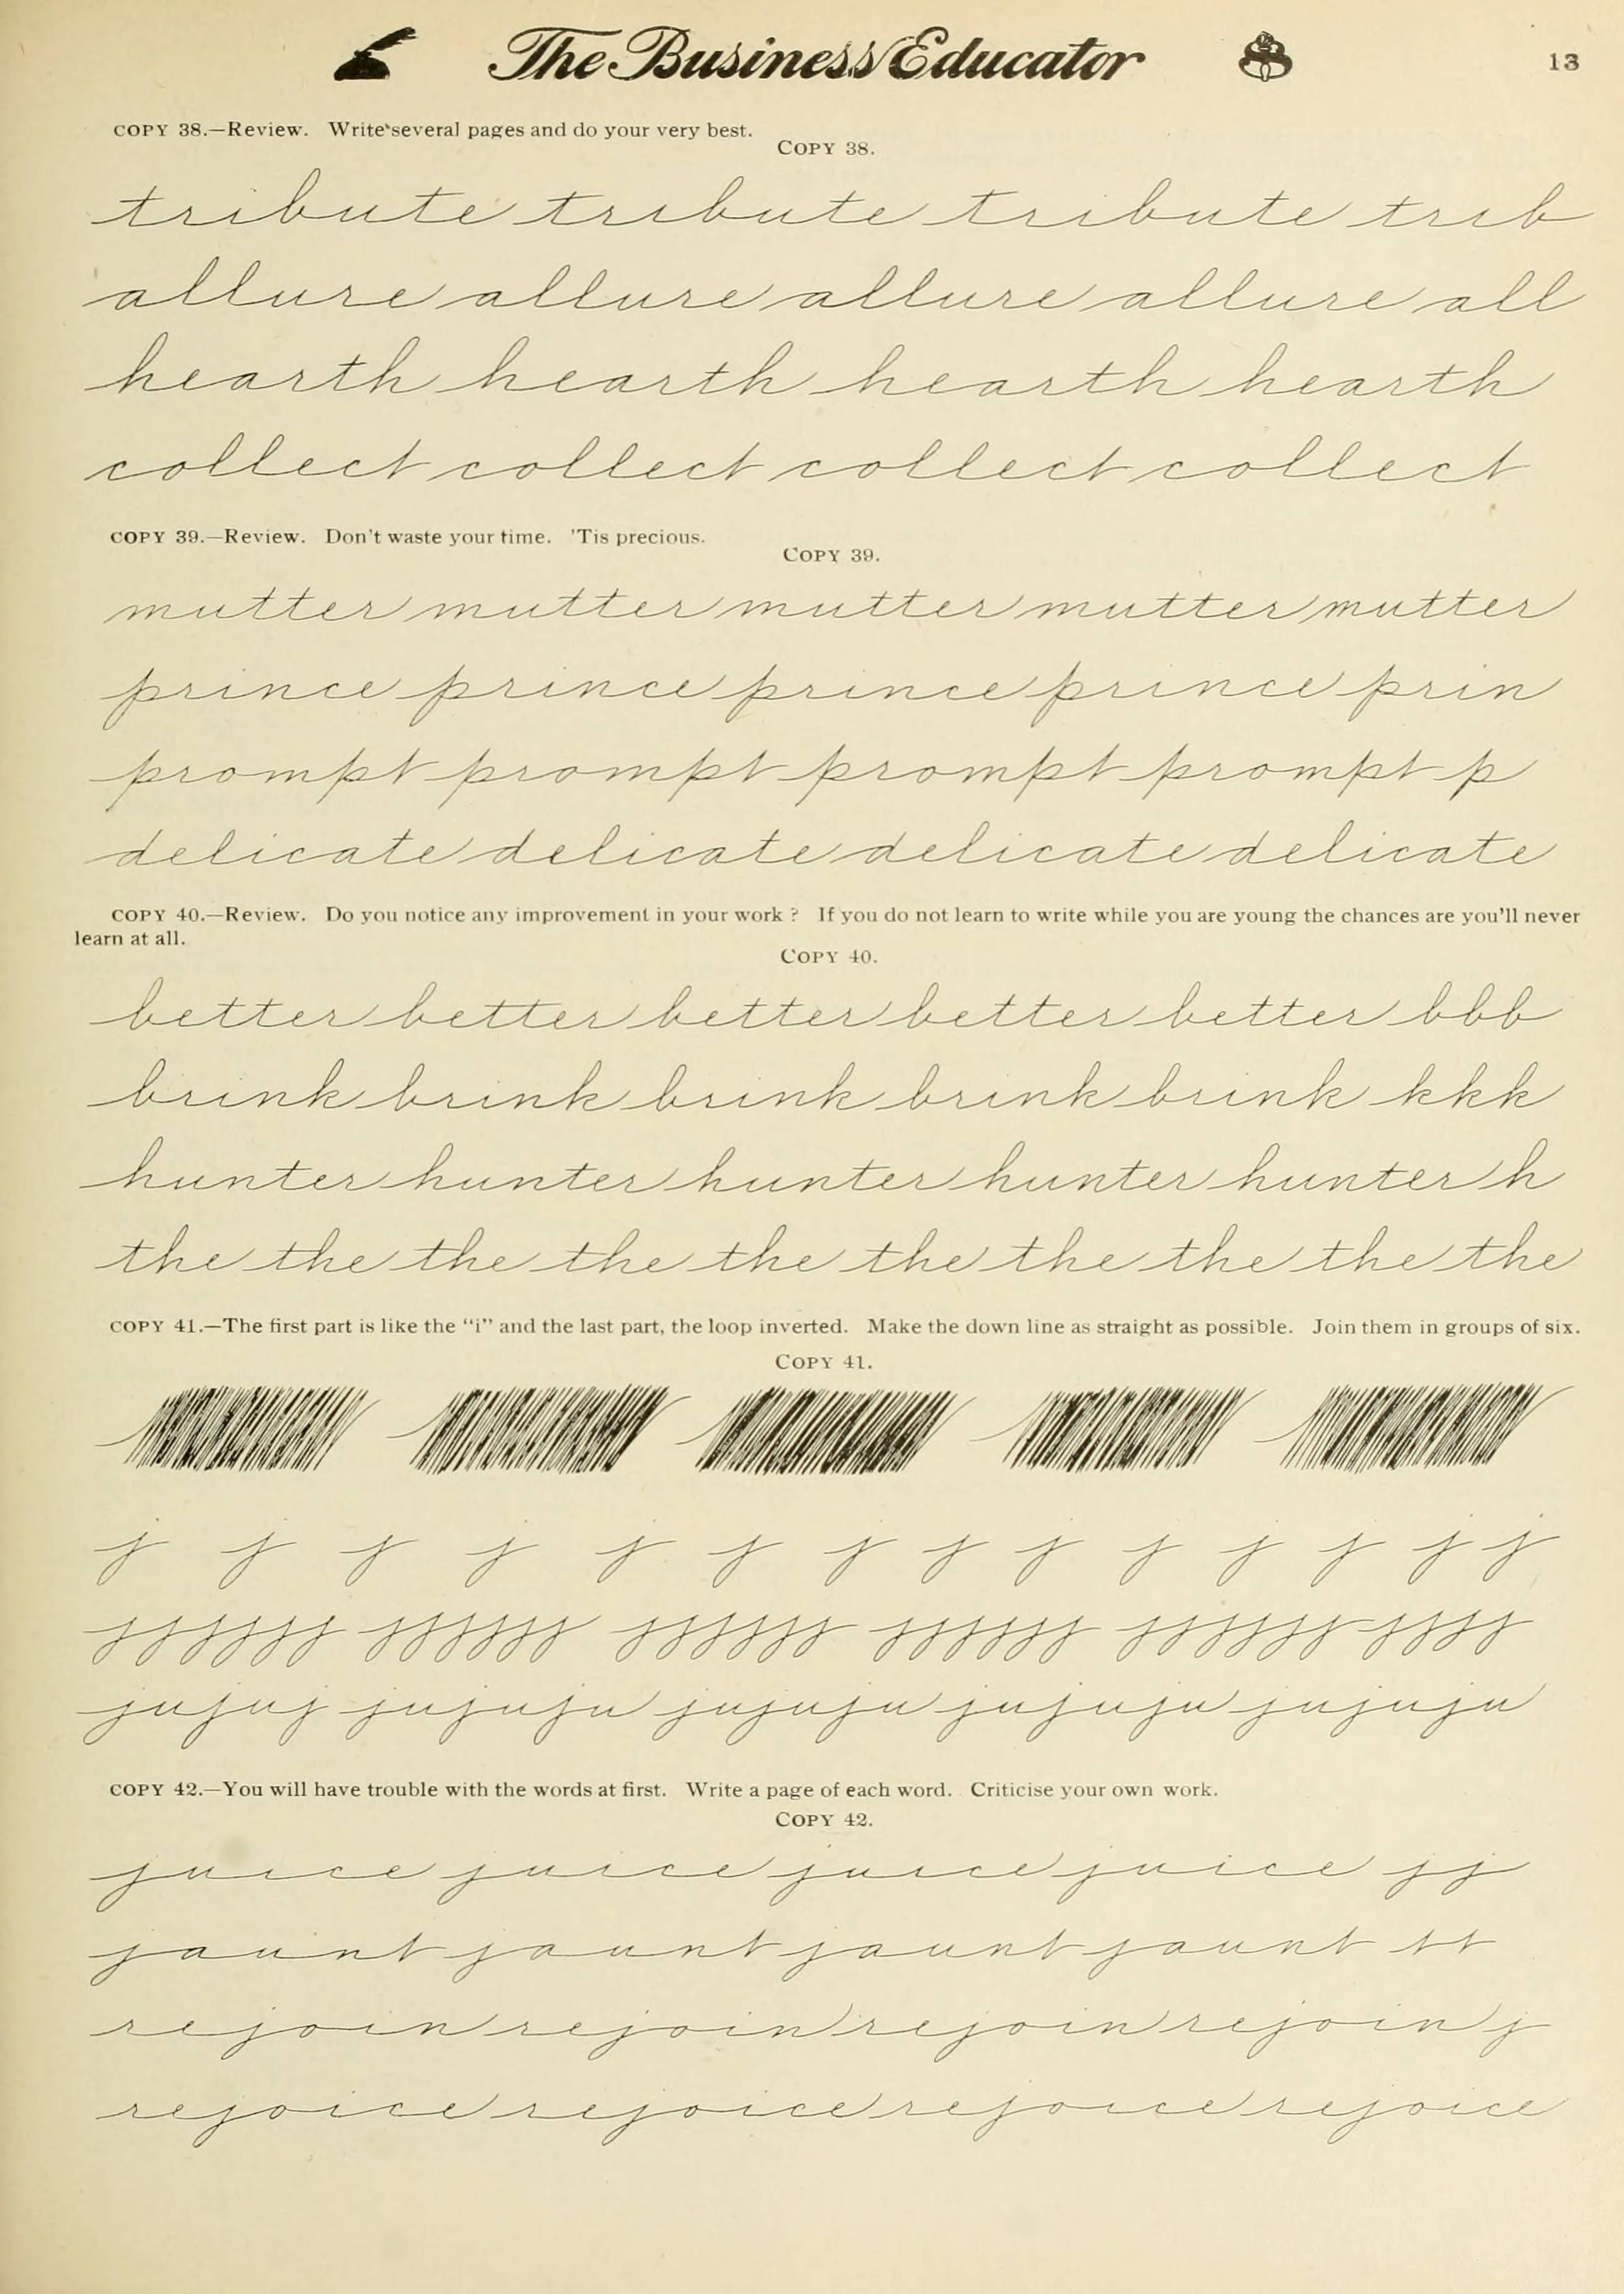 The Business Educator 13
COPY 38.—Review. Write several pages and do your very best.
COPY 38.
tribute tribute tribute trib
allure allure allure allure all
hearth hearth hearth hearth
collect collect collect collect
COPY 39.—Review. Don't waste your time. 'Tis precious.
COPY 39.
mutter mutter mutter mutter mutter
prince prince prince prince prin
prompt prompt prompt prompt p
delicate delicate delicate delicate
COPY 40.—Review. Do you notice any improvement in your work ? If you do not learn to write while you are young the chances are you'll never
learn at all.
COPY 40.
better better better better better bbb
brink brink brink brink brink kkk
hunter hunter hunter hunter hunter h
the the the the the the the the the the
COPY 41.—The first part is like the "i" and the last part, the loop inverted. Make the down line as straight as possible. Join them in groups of six.
COPY 41.
j j j j j j j j j j j j j j
jjjjjj jjjjjj jjjjjj jjjjjj jjjjjj jjjj
jujuj jujuju jujuju jujuju jujuju
COPY 42.—You will have trouble with the words at first. Write a page of each word. Criticise your own work.
COPY 42.
juice juice juice juice jj
jaunt jaunt jaunt jaunt tt
rejoin rejoin rejoin rejoin j
rejoice rejoice rejoice rejoice